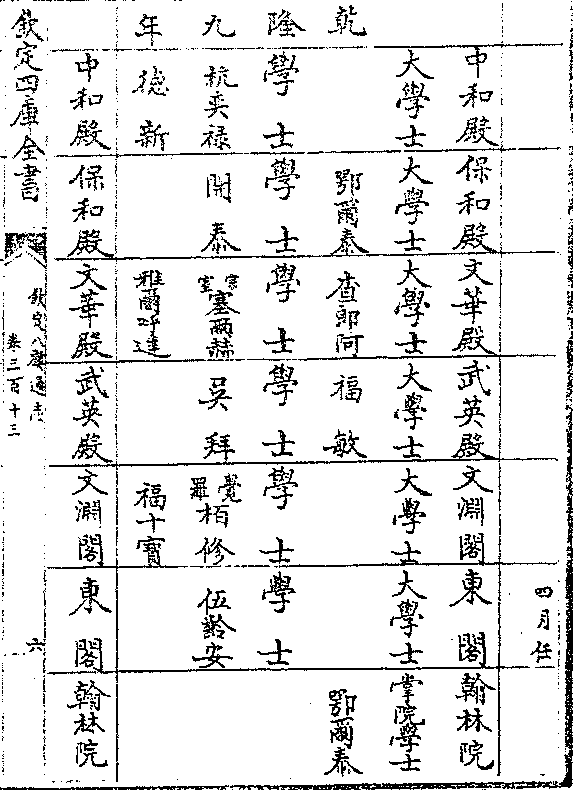 四月任
乾隆九年
中和殿 保和殿 文華殿 武英殿 文淵閣 東閣 翰林院
大學士 大學士 大學士 大學士 大學士 大學士 掌院學士
鄂爾泰 查郎阿 福敏 鄂爾泰
學士 學士 學士 學士 學士 學士
杭奕禄 開泰 宗室塞爾赫 吳拜 覺羅柏修 伍齡安
德新 雅爾呼達 福十寶
中和殿 保和殿 文華殿 武英殿 文淵閣 東閣 翰林院
欽定四庫全書
欽定八旗通志
卷三百十三
六